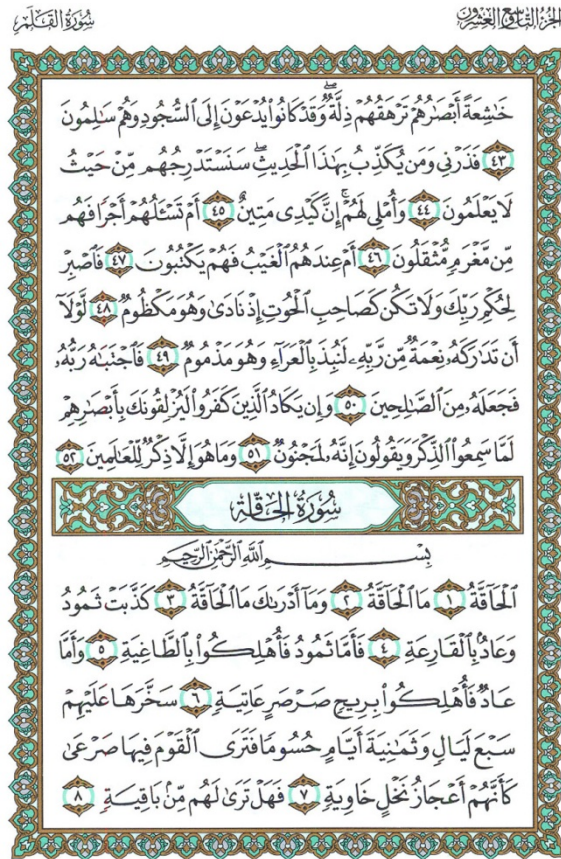 الجزء التاسع والعشرون
سُورَةُ القَلَمِ
خَٰشِعَةً أَبْصَٰرُهُمْ تَرْهَقُهُمْ ذِلَّةٌۖ وَقَدْ كَانُوا۟ يُدْعَوْنَ إِلَى ٱلسُّجُودِ وَهُمْ سَٰلِمُونَ
٤٣ فَذَرْنِى وَمَن يُكَذِّبُ بِهَٰذَا ٱلْحَدِيثِۖ سَنَسْتَدْرِجُهُم مِّنْ حَيْثُ
لَا يَعْلَمُونَ ٤٤ وَأُمْلِى لَهُمْۚ إِنَّ كَيْدِى مَتِينٌ ٤٥ أَمْ تَسْـَٔلُهُمْ أَجْرًا فَهُم
مِّن مَّغْرَمٍ مُّثْقَلُونَ ٤٦ أَمْ عِندَهُمُ ٱلْغَيْبُ فَهُمْ يَكْتُبُونَ ٤٧ فَٱصْبِرْ
لِحُكْمِ رَبِّكَ وَلَا تَكُن كَصَاحِبِ ٱلْحُوتِ إِذْ نَادَىٰ وَهُوَ مَكْظُومٌ ٤٨ لَّوْلَآ
أَن تَدَٰرَكَهُۥ نِعْمَةٌ مِّن رَّبِّهِۦ لَنُبِذَ بِٱلْعَرَآءِ وَهُوَ مَذْمُومٌ ٤٩ فَٱجْتَبَٰهُ رَبُّهُۥ
فَجَعَلَهُۥ مِنَ ٱلصَّٰلِحِينَ ٥٠ وَإِن يَكَادُ ٱلَّذِينَ كَفَرُوا۟ لَيُزْلِقُونَكَ بِأَبْصَٰرِهِمْ
لَمَّا سَمِعُوا۟ ٱلذِّكْرَ وَيَقُولُونَ إِنَّهُۥ لَمَجْنُونٌ ٥١ وَمَا هُوَ إِلَّا ذِكْرٌ لِّلْعَٰلَمِينَ ٥٢
سُورَةُ الحَاقَّةِ
بِسْمِ ٱللَّهِ ٱلرَّحْمَٰنِ ٱلرَّحِيمِ
ٱلْحَآقَّةُ ١ مَا ٱلْحَآقَّةُ ٢ وَمَآ أَدْرَىٰكَ مَا ٱلْحَآقَّةُ ٣ كَذَّبَتْ ثَمُودُ
وَعَادٌۢ بِٱلْقَارِعَةِ ٤ فَأَمَّا ثَمُودُ فَأُهْلِكُوا۟ بِٱلطَّاغِيَةِ ٥ وَأَمَّا
عَادٌ فَأُهْلِكُوا۟ بِرِيحٍ صَرْصَرٍ عَاتِيَةٍ ٦ سَخَّرَهَا عَلَيْهِمْ
سَبْعَ لَيَالٍ وَثَمَٰنِيَةَ أَيَّامٍ حُسُومًا فَتَرَى ٱلْقَوْمَ فِيهَا صَرْعَىٰ
كَأَنَّهُمْ أَعْجَازُ نَخْلٍ خَاوِيَةٍ ٧ فَهَلْ تَرَىٰ لَهُم مِّنۢ بَاقِيَةٍ ٨